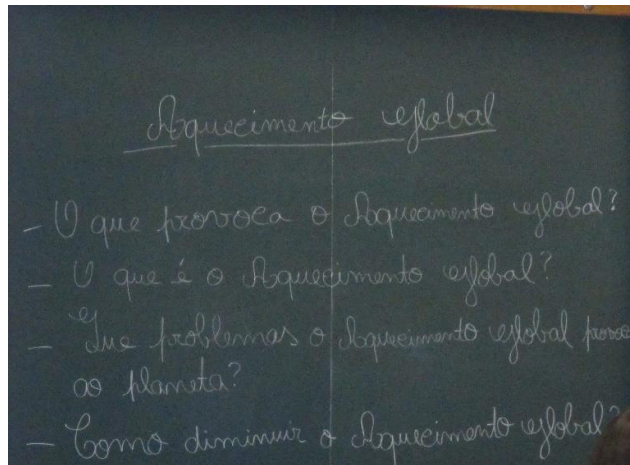 Aquecimento Global
- O que provoca o Aquecimento Global?
- O que é o Aquecimento Global?
- Que problemas o Aquecimento Global
ao planeta?
- Como diminuir o Aquecimento Global?